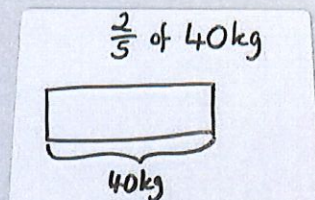 2/5 of 40kg
40kg